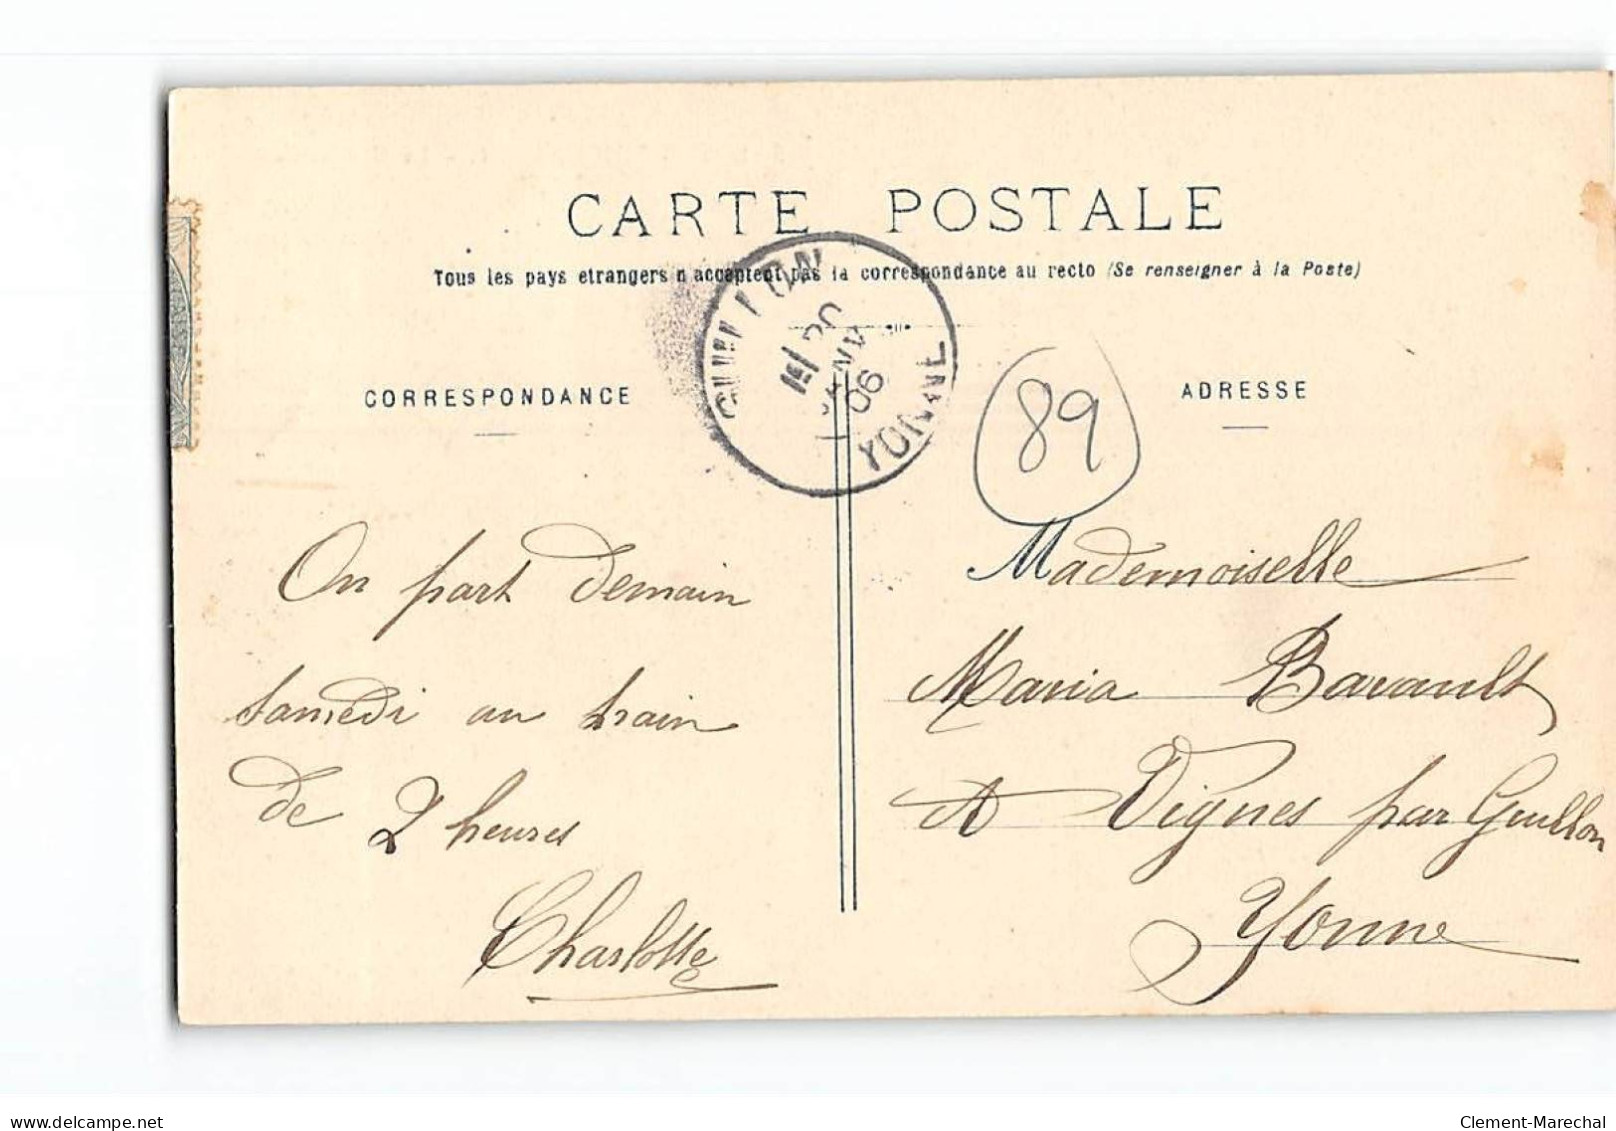 CARTE POSTALE
Tous les pays etrangers n'acceptent pas la correspondance au recto (Se renseigner à la Poste)
GUILLON
20
JANV
06
YONNE
89
CORRESPONDANCE
ADRESSE
On part demain
samedi au train
de 2 heures
Charlotte
Mademoiselle
Maria Barault
A Vignes par Guillon
Yonne
delcampe.net
Clement-Marechal